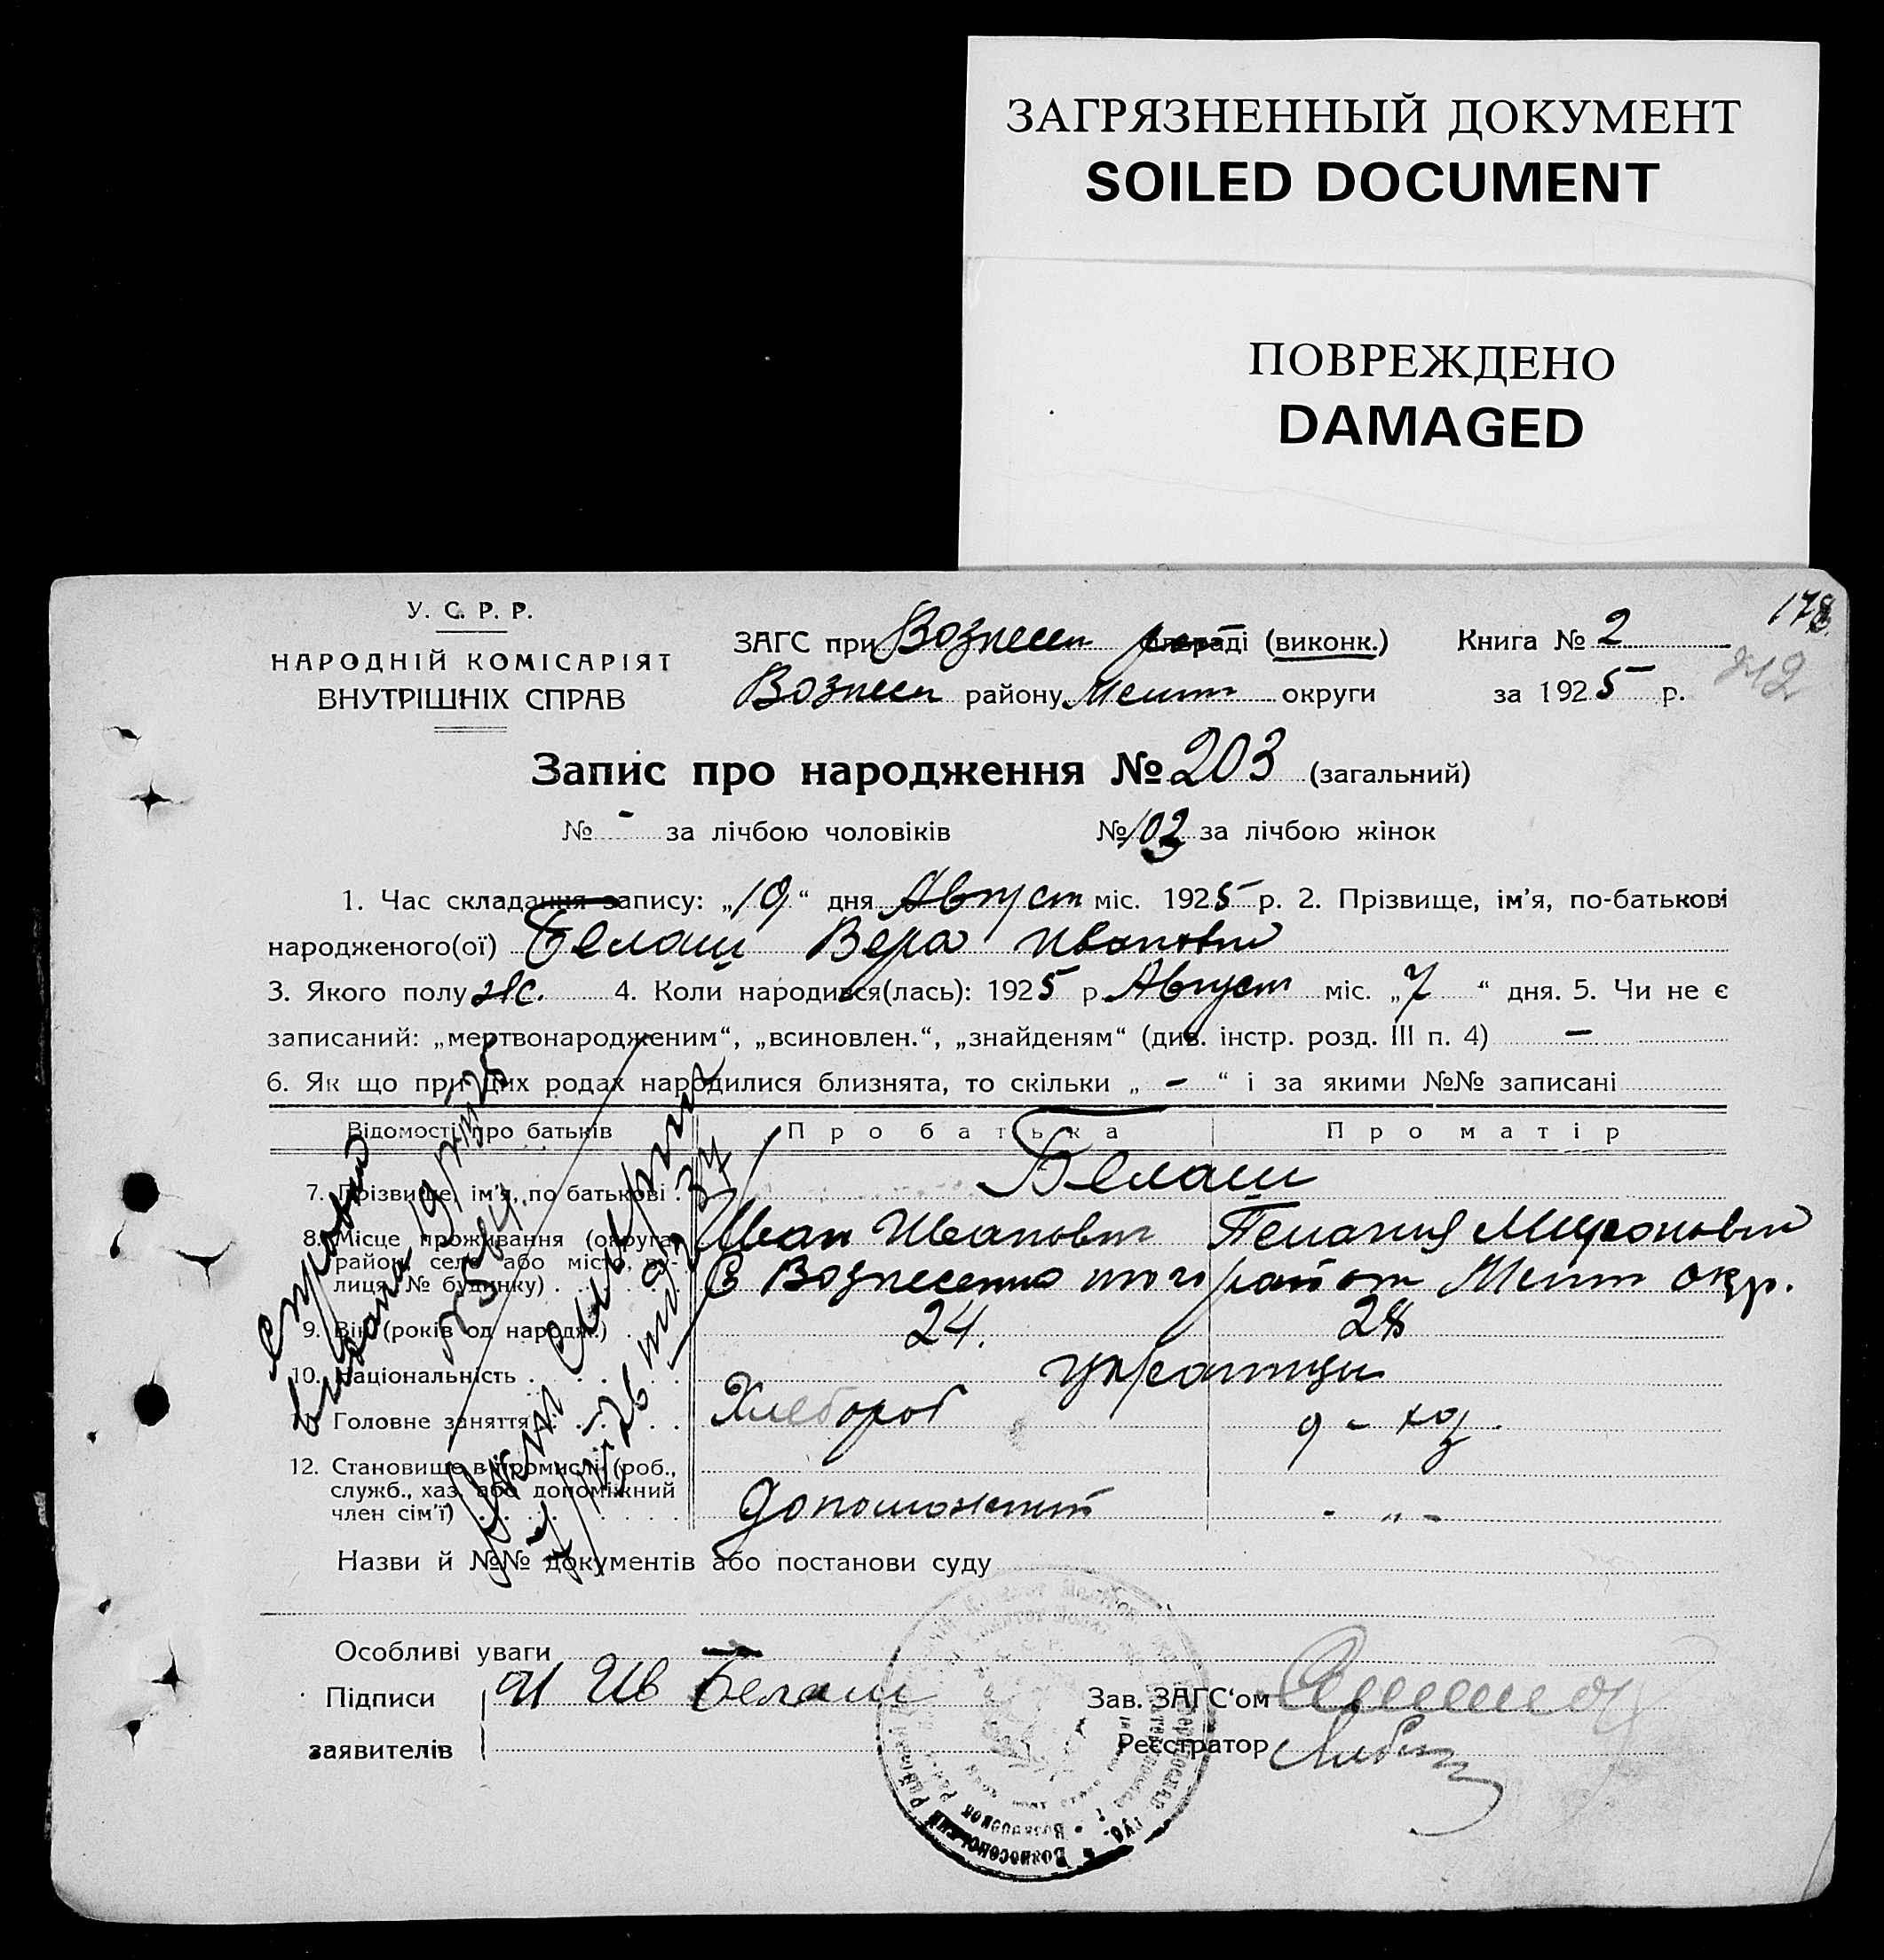 ЗАГРЯЗНЕННЫЙ ДОКУМЕНТ
SOILED DOCUMENT
ПОВРЕЖДЕНО
DAMAGED
178
212
У. С. Р. Р.
НАРОДНІЙ КОМІСАРІЯТ
ВНУТРІШНІХ СПРАВ
ЗАГС при Вознесен раді (виконк.) Книга № 2
Вознесен району Мелит округи за 1925 р.
Запис про народження № 203 (загальний)
№ - за лічбою чоловіків № 102 за лічбою жінок
1. Час складання запису: „19“ дня Август міс. 1925 р. 2. Прізвище, ім’я, по-батькові
народженого(ої) Белаш Вера Ивановна
3. Якого полу ж. 4. Коли народився(лась): 1925 р. Август міс. „7“ дня. 5. Чи не є
записаний: „мертвонародженим“, „всиновлен.“, „знайденям“ (див. інстр. розд. III п. 4) —
6. Як що при цих родах народилися близнята, то скільки „ - “ і за якими №№ записані
Відомості про батьків Про батька Про матір
7. Прізвище, ім’я, по батькові Белаш
Иван Иванович Пелагия Мироновна
8. Місце проживання (округа, район, село або місто, вулиця, № будинку) С Вознесенка того району Мелит окр.
9. Вік (років од народж.) 24. 28
10. Національність украинцы
11. Головне заняття Хлебороб д - хоз.
12. Становище в промислі (роб., служб., хаз. або допоміжний член сім’ї) допоможний - „ -
Назви й №№ документів або постанови суду
Особливі уваги
Підписи И Ив Белаш Зав. ЗАГС‘ом
заявителів Реєстратор